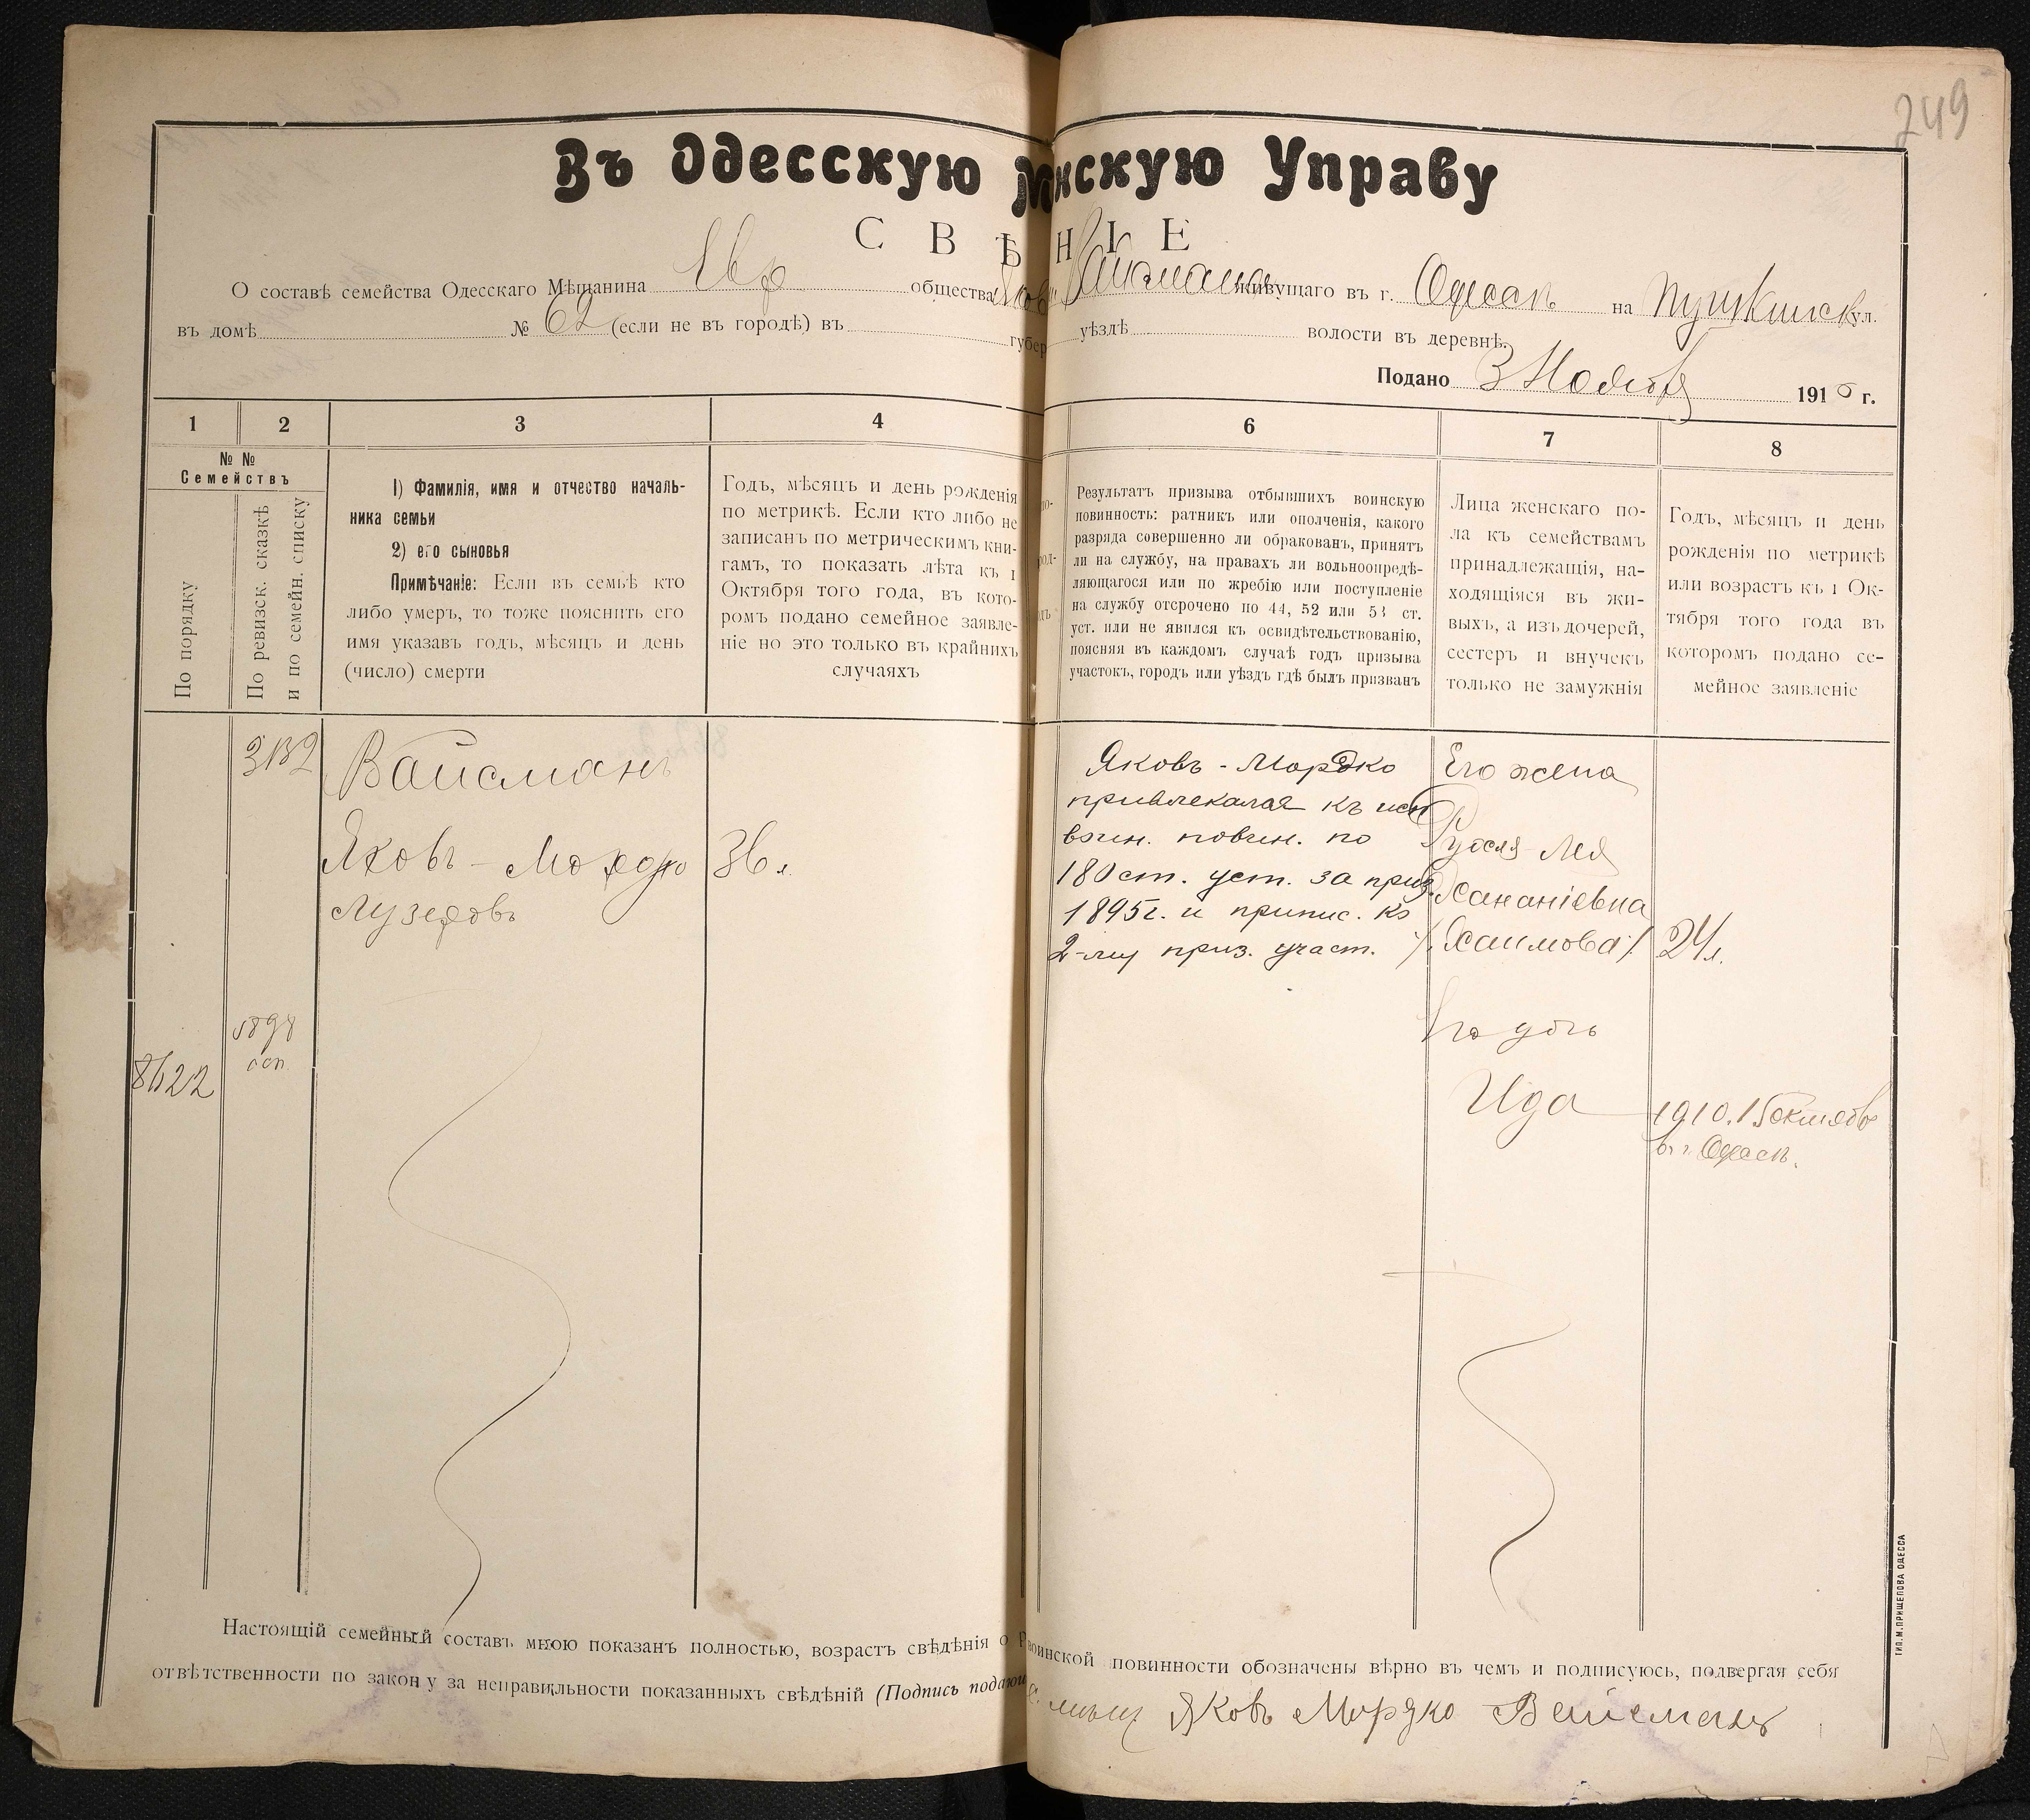 249
Въ Одесскую М нскую Управу
С В Ѣ Н І Е
О составѣ семейства Одесскаго Мѣщанина Евр общества Яков Вайсмана живущаго въ г. Одессѣ на Пушкинск ул.
въ домѣ № 62 (если не въ городѣ) въ губер уѣздѣ волости въ деревнѣ.
Подано 3 Ноября 191 г.
1 2 3 4 6 7 8
№ №
Семействъ
По порядку
По ревизск. сказкѣ
и по семейн. списку
1) Фамилія, имя и отчество началь-
ника семьи
2) его сыновья
Примѣчаніе: Если въ семьѣ кто
либо умеръ, то тоже пояснить его
имя указавъ годъ, мѣсяцъ и день
(число) смерти
Годъ, мѣсяцъ и день рожденія
по метрикѣ. Если кто либо не
записанъ по метрическимъ кни-
гамъ, то показать лѣта къ 1
Октября того года, въ кото-
ромъ подано семейное заявле-
ніе но это только въ крайнихъ
случаяхъ
Результатъ призыва отбывшихъ воинскую
повинность: ратникъ или ополченія, какого
разряда совершенно ли обракованъ, принятъ
ли на службу, на правахъ ли вольноопредѣ-
ляющагося или по жребію или поступленіе
на службу отсрочено по 44, 52 или 53 ст.
уст. или не явился къ освидѣтельствованію,
поясняя въ каждомъ случаѣ годъ призыва
участокъ, городъ или уѣздъ гдѣ былъ призванъ
Лица женскаго по-
ла къ семействамъ
принадлежащія, на-
ходящіяся въ жи-
выхъ, а изъ дочерей,
сестеръ и внучекъ
только не замужнія
Годъ, мѣсяцъ и день
рожденія по метрикѣ
или возрастъ къ 1 Ок-
тября того года въ
которомъ подано се-
мейное заявленіе
3132
Вайсманъ
Яковъ-Мордко
Лузеровъ
36 л.
Яковъ-Мордко
привлекался къ исп
воин. повин. по
180 ст. уст. за приз.
1895г. и припис. ко
2-му приз. участ.
Его жена
Рухля Лея
Хананіевна
/. Хаимова ./
24 л.
8622
5898
Его дочь
Ида
1910. 15 октября
въ г. Одессѣ.
Настоящій семейный составъ мною показанъ полностью, возрастъ свѣдѣнія о воинской повинности обозначены вѣрно въ чемъ и подписуюсь, подвергая себя
отвѣтственности по закону за неправильности показанныхъ свѣдѣній (Подпись подающ
Яковъ Мордко Вайсманъ
ТИП. М. ПРИЩЕПОВА ОДЕССА